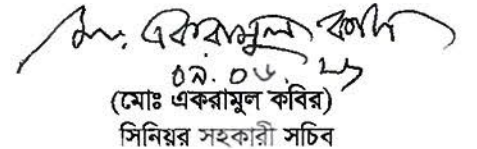 মোঃ একরামুল কবির
০৯.০৬.২১
(মোঃ একরামুল কবির)
সিনিয়র সহকারী সচিব